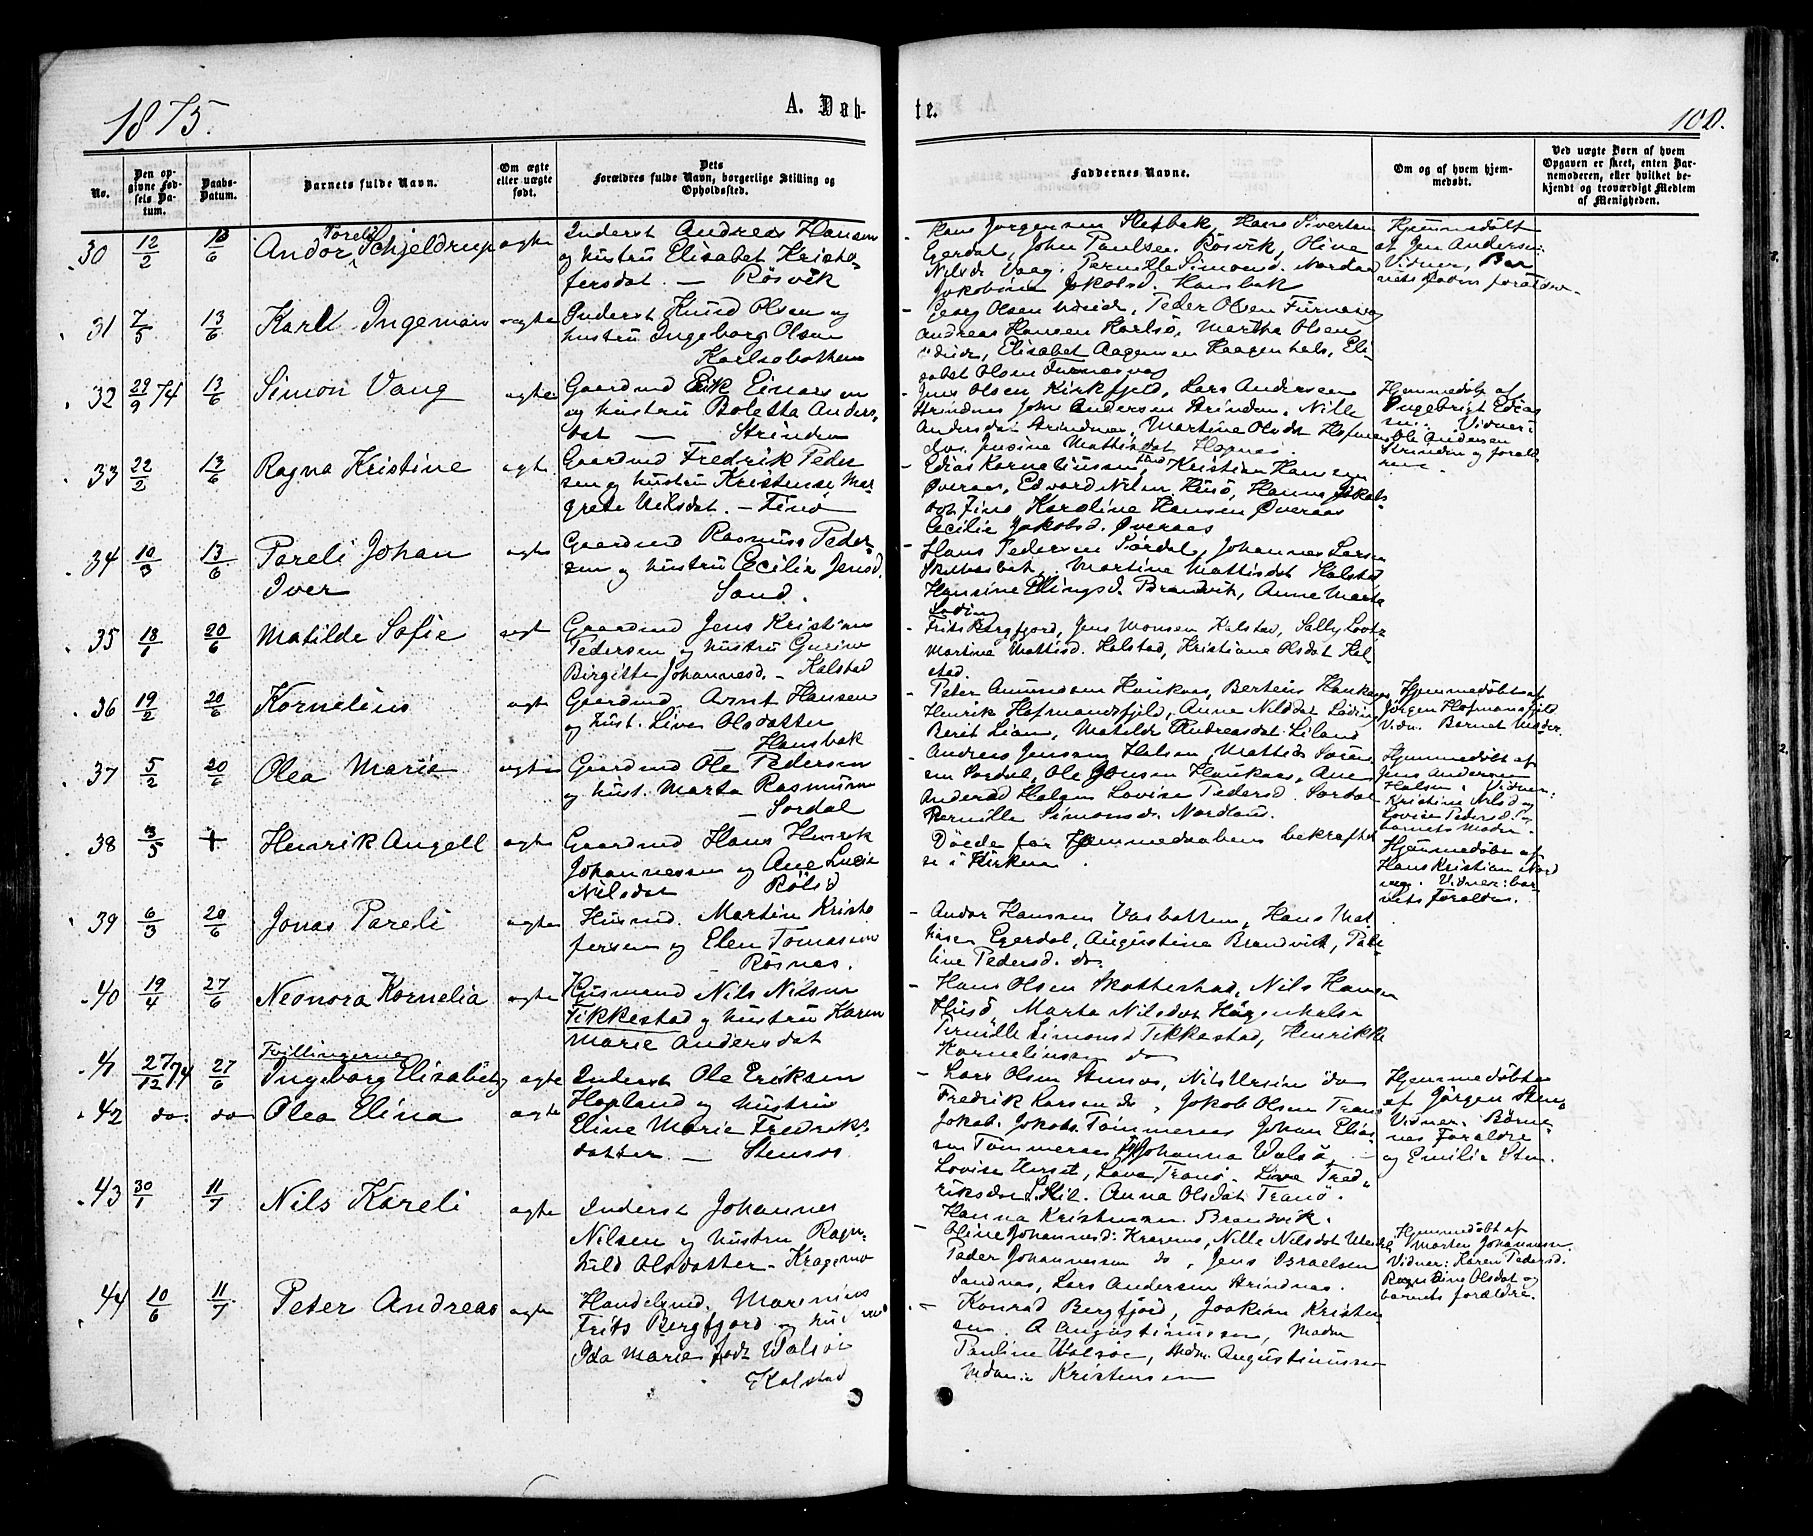 1875.
A. Døb-
te.
100.
No.
Den opgivne Fødsels Datum.
Daabs-Datum.
Barnets fulde Navn.
Om ægte eller uægte født.
Dets Forældres fulde Navn, borgerlige Stilling og Opholdssted.
Faddernes Navne.
Om og af hvem hjemmedøbt.
Ved uægte Børn af hvem Opgaven er skeet, enten Barnemoderen, eller hvilket bekjendt og troværdigt Medlem af Menigheden.
30 12/2 13/6 Andor Pareli Schjeldrup ægte
Inderst Andreas Hansen
og hustru Elisabet Kristo-
fersdat. — Røsvik
Hans Jørgensen Hans Sivertsen
Egerdal, John Paulsen Røsvik, Oline
Nilsd. Vaag, Pernille Simonsd. Nordau
Jakobine Jakobsd. Hansbak
Hjemmedøbt
af Jens Andersen
Vidner, Bar
nets forældre
31 7/5 13/6 Karl Ingeman ægte
Inderst Knud Olsen og
hustru Ingeborg Olsen
Karlsøbotten
Georg Olsen Peder Olsen Furnesvag
Andreas Hansen Karlsø, Martha Olsen
Elisabet Aagensen Haagenhals, Eli-
sabet Olsen Furnesvag
32 29/9 74 13/6 Simon Vang ægte
Gaardmd Erik Einarsen
og hustru Boletta Anders-
dat — Strinden
Jens Olsen Kirkfjeld, Lars Andersen
Strindnes John Andersen Strinden, Nille
Andersdat Strindnes, Martine Olsdat
Jensine Mattisdat Hopnes
Hjemmedøbt af
Ingebrigt Edias
sen. Vidner:
Ole Andersen
Strinden og foræl
drene
33 22/2 13/6 Ragna Kristine ægte
Gaardmd Fredrik Peder
sen og hustru Kristense Mar-
grete Nilsdat. — Finø
Edias Korneliussen Kristian Hansen
Øveraas, Edvard Nilsen Husø, Hanna Jakobs-
dat Finø, Karoline Hansen Øveraas
Cecilie Jakobsd. Øveraas
34 10/3 13/6 Pareli Johan
Iver ægte
Gaardmd Rasmus Peder-
sen og hustru Cecilie Jensd.
Sand.
Hans Pedersen Sørdal, Johannes Larsen
Martine Mattisdat Kalstad
Hansine Ellingsd. Brandvik, Anne Marta
Løding
35 18/1 20/6 Matilde Sofie ægt
Gaardmd Jens Kristian
Pedersen og hustru Gurine
Birgitte Johannesd. — Kalstad
Frits Bergfjord, Jens Monsen Kalstad, Sally Lootz
Martina Mattisd. Kalstad, Kristiane Olsdat Kal
stad.
36 19/2 20/6 Kornelius ægte
Gaardmd Arnt Hansen
og hust. Live Olsdatter
— Hansbak
Peter Amundsen Haukaas, Berteus Haukaas
Henrik Hofmandsfjeld, Anne Nilsdat Løding
Berit Lian, Matilde Andreasdat Liland
Hjemmedøbt af
Jørgen Hofmansfjeld
Vidn. Barnets Moder
37 5/2 20/6 Olea Marie ægte
Gaardmd Ole Pedersen
og hust. Marta Rasmusen
— Sørdal
Andreas Jensen Halsen, Mattis Søren
sen Sørdal, Ole Jonsen Haukaas, Ane
Andersd Halsen Lovise Pedersd. Sørdal
Pernille Simonsd. Nordlau
Hjemmedøbt af
Jens Andersen
Halsen. Vidner:
Kristine Nilsd og
Lovise Pedersd. og
barnets Moder.
38 3/5 + Henrik Angell ægte
Gaardmd Hans Henrik
Johannessen og Ane Lucie
Nilsdat Røsø
Døde før Hjemmedaabens bekræftel
se i Kirken
Hjemmedøbt af
Hans Kristian Nord
Vidner: bar
nets forældre
39 6/3 20/6 Jonas Pareli ægte
Husmd. Martin Kristo
fersen og Elen Tomasen
Røsnes.
Andor Hanssen Vasbotten, Hans Mat
hisen Egerdal, Augustine Brandvik, Pau-
line Pedersd. do
40 19/4 27/6 Neonora Kornelia ægte
Husmand Nils Nilsen
Tikkestad og hustru Karen
Marie Andersdat
Hans Olsen Skotterstad, Nils Hansen
Husø, Marta Nilsdat Haagenhalsen
Pernille Simonsd Tikkestad, Henrikke
Korneliussen do
Tvillingerne
41 27/12 74 27/6 Ingeborg Elisabet ægte
42 do do Olea Elina ægte
Inderst Ole Eriksen
Hopland og hustru
Eline Marie Fredriks-
datter — Stensøs
Lars Olsen Stensøs, Nils Ursin do
Fredrik Larsen do, Jakob Olsen Tranø
Jakob Jakobs. Tømmernes Johan Elias-
sen Tømmernes Johanna Walsø
Lovise Lava Tranø. Live Fred-
riksdat Anna Olsdat Tranø.
Hjemmedøbte
af Jørgen Sten.
Vidner. Børne-
nes Forældre
og Emilie Sten
43 30/1 11/7 Nils Kareli ægte
Inderst Johannes
Nilsen og hustru Ragn-
hild Olsdatter — Kragemo
Hanna Kristensen Brandvik.
Oline Johannesd: Nille Nilsdat
Peder Johannessen do, Jens Israelsen
Sandnes, Lars Andersen Strindnes.
Hjemmedøbt af
Morten Johannessen.
Vidner: Karen Pedersd.
Olsdat og
barnets forældre.
44 10/6 11/7 Peter Andreas ægte
Handelsmd. Marenius
Frits Bergfjord og hustru
Ida Marie født Walsøe
Kalstad
Konrad Bergfjord, Joakim Kristen
sen. A Augustinussen, Madm
Pauline Walsøe, Madm. Augustinussen
Kristensen